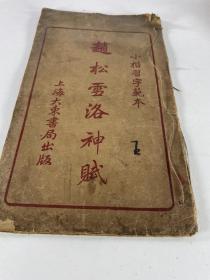 小楷習字範本
趙松雪洛神賦
上海大東書局出版